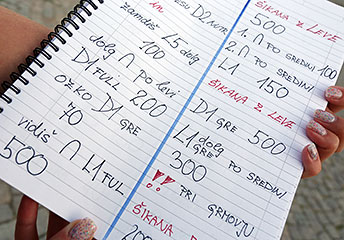 D2 NOTR
zamudiš
L5 dolg
100
dolg ∩ po levi
D1 FUL 200
OŽKO D1 GRE
70
vidiš ∩ L1 FUL
500
ŠIKANA Z LEVE
500
1. ∩ PO SREDINI 100
2. ∩ PO SREDINI
L1 150
ŠIKANA Z LEVE
D1 GRE 500
L1 dolg GRE PO SREDINI
300
!!! PRI GRMOVJU
ŠIKANA
200